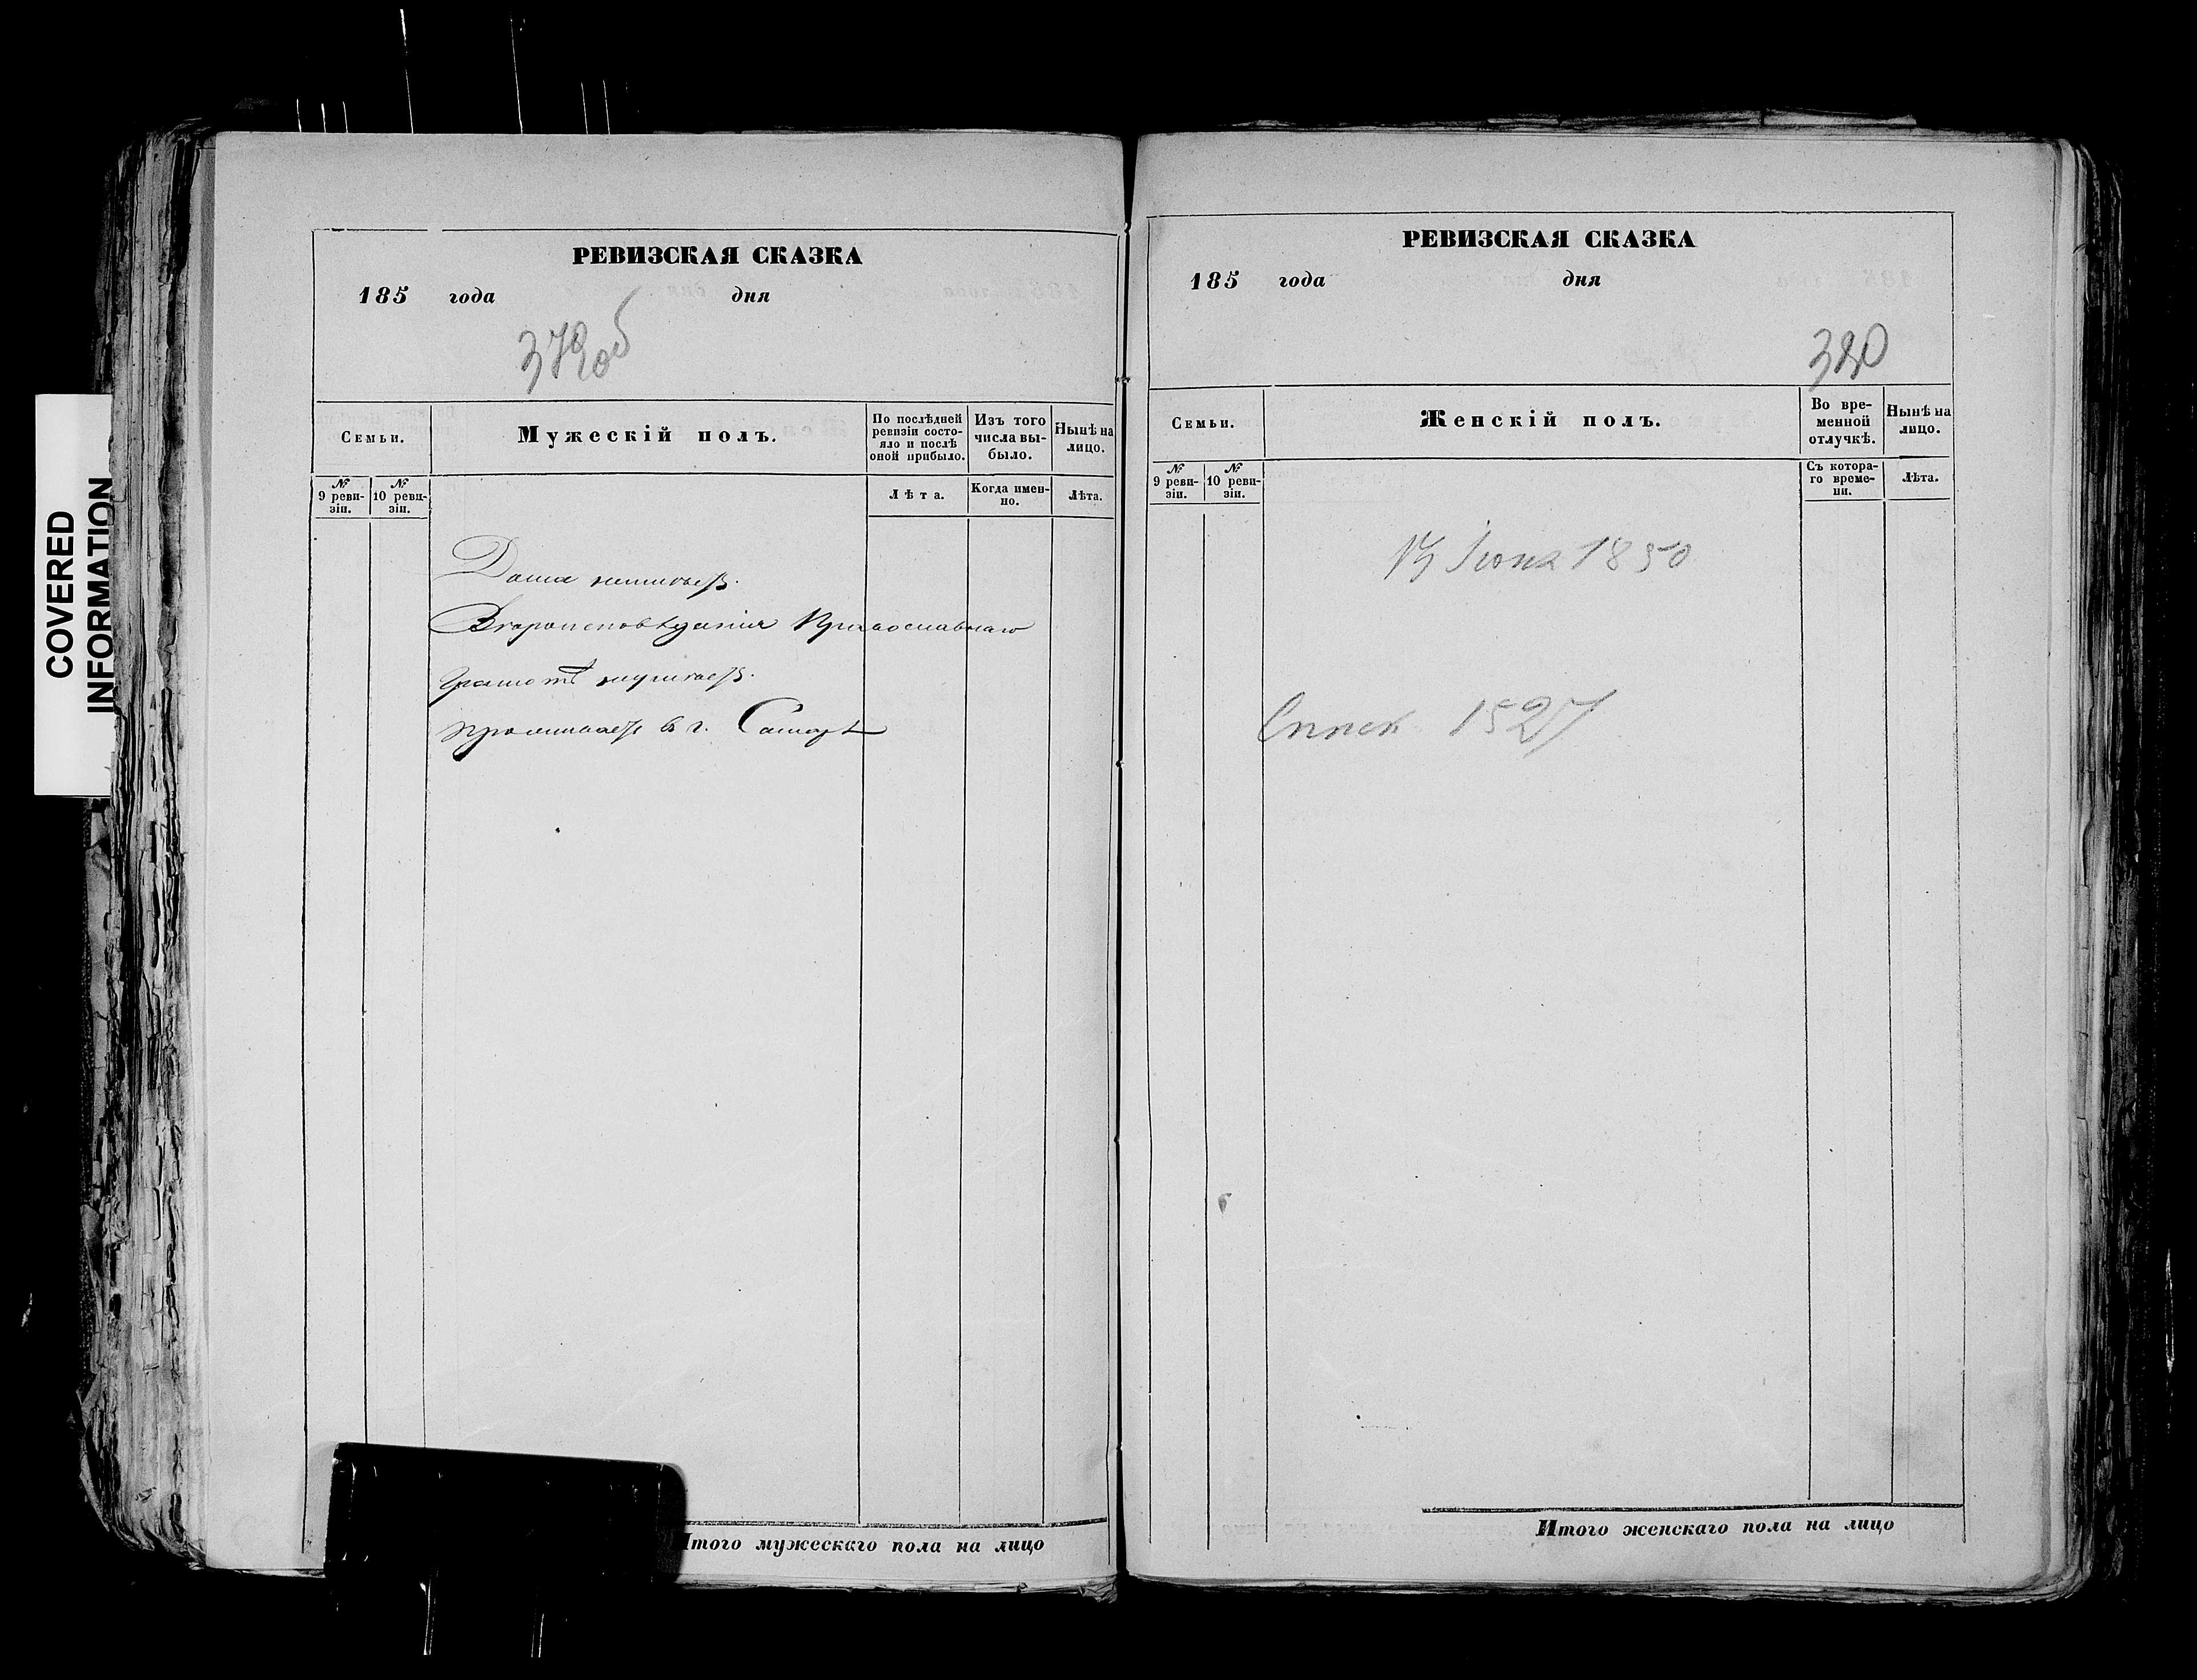 COVERED
INFORMATION
РЕВИЗСКАЯ СКАЗКА
185 года дня
379об
Семьи.
Мужескій полъ.
По послѣдней ревизіи состояло и послѣ оной прибыло.
Изъ того числа выбыло.
Нынѣ на лицо.
№ 9 ревизіи.
№ 10 ревизіи.
Лѣта.
Когда именно.
Лѣта.
Дома неимѣетъ.
Вѣроисповѣданія Православнаго
Грамотѣ неумѣетъ.
проживаетъ въ г. Самарѣ
Итого мужескаго пола на лицо
РЕВИЗСКАЯ СКАЗКА
185 года дня
380
Семьи.
Женскій полъ.
Во временной отлучкѣ.
Нынѣ на лицо.
№ 9 ревизіи.
№ 10 ревизіи.
Съ котораго времени.
Лѣта.
Іюня 1850
1527
Итого женскаго пола на лицо